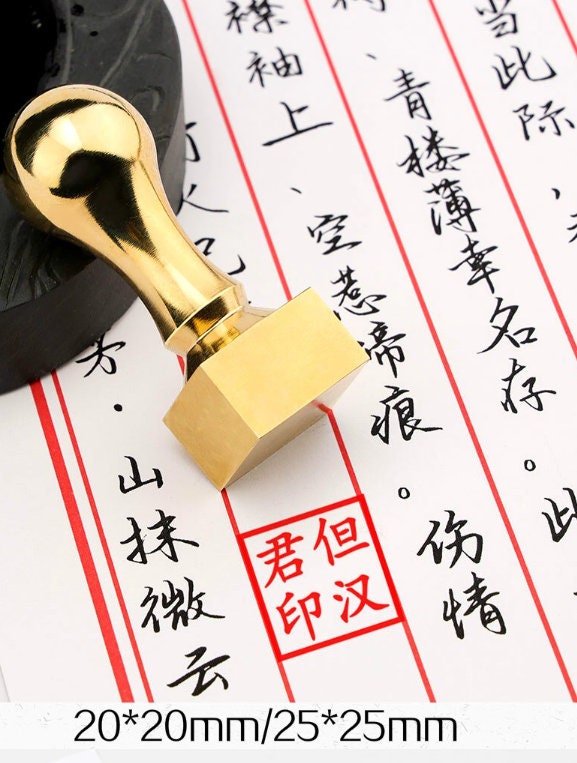 当此际，
、青楼薄幸名存。此
襟袖上、空惹啼痕。伤情
·山抹微云
但汉
君印
20*20mm/25*25mm